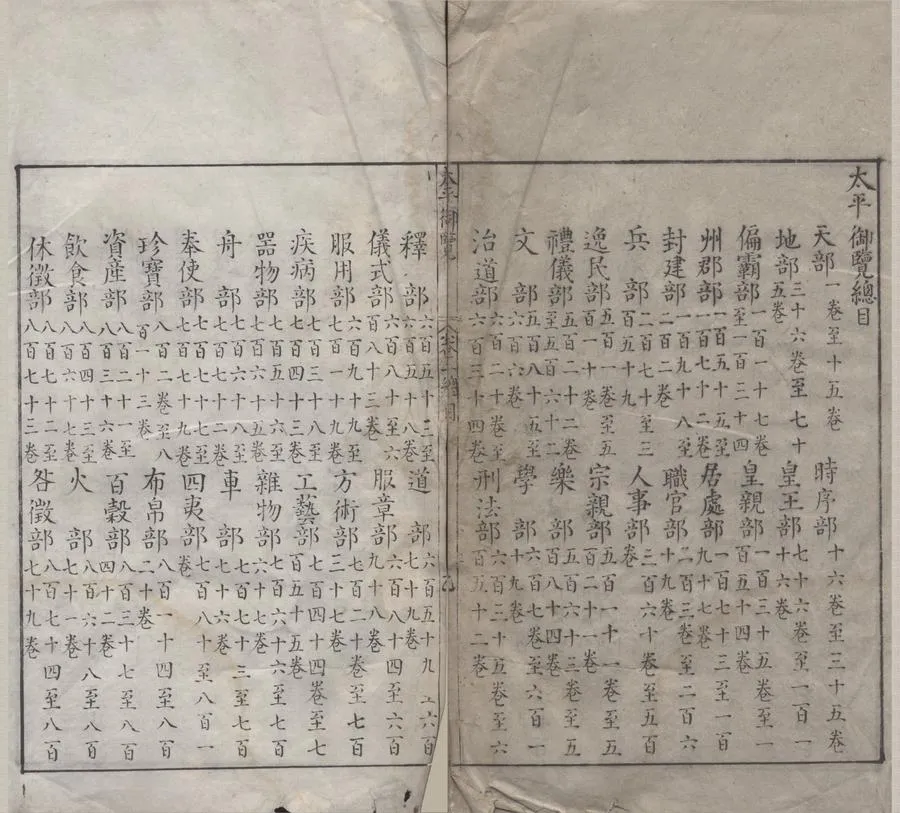 太平御覽總目
天部一卷至十五卷 時序部十六卷至三十五卷
地部三十六卷至七十五卷 皇王部七十六卷至一百一十六卷
偏霸部一百一十七卷至一百三十四 皇親部一百三十五卷至一百五十四卷
州郡部一百五十五至一百七十二卷 居處部一百七十三至一百九十七卷
封建部一百九十八至二百二卷 職官部二百三卷至二百六十九卷
兵部二百七十至三百五十九 人事部三百六十卷至五百卷
逸民部五百一卷至五百一十卷 宗親部五百一十一卷至五百二十一卷
禮儀部五百二十二卷至五百六十二 樂部五百六十三卷至五百八十四卷
文部五百八十五至六百六卷 學部六百七卷至六百一十九卷
治道部六百二十至六百三十四卷 刑法部六百三十五卷至六百五十二卷
太平御覽 總目
釋部六百五十三至六百五十八卷 道部六百五十九至六百七十九卷
儀式部六百八十至六百八十三卷 服章部六百八十四至六百九十八卷
服用部六百九十九至七百一十九卷 方術部七百二十卷至七百三十七卷
疾病部七百三十八至七百四十三卷 工藝部七百四十四卷至七百五十五卷
器物部七百五十六至七百六十五卷 雜物部七百六十六至七百六十七卷
舟部七百六十八至七百七十二卷 車部七百七十三至七百七十六卷
奉使部七百七十七至七百七十九卷 四夷部七百八十至八百一卷
珍寶部八百二卷至八百一十三卷 布帛部八百一十四至八百二十卷
資產部八百二十一至八百三十六卷 百穀部八百三十七至八百四十二卷
飲食部八百四十三至八百六十七卷 火部八百六十八至八百七十一卷
休徵部八百七十二至八百七十三卷 咎徵部八百七十四至八百七十九卷